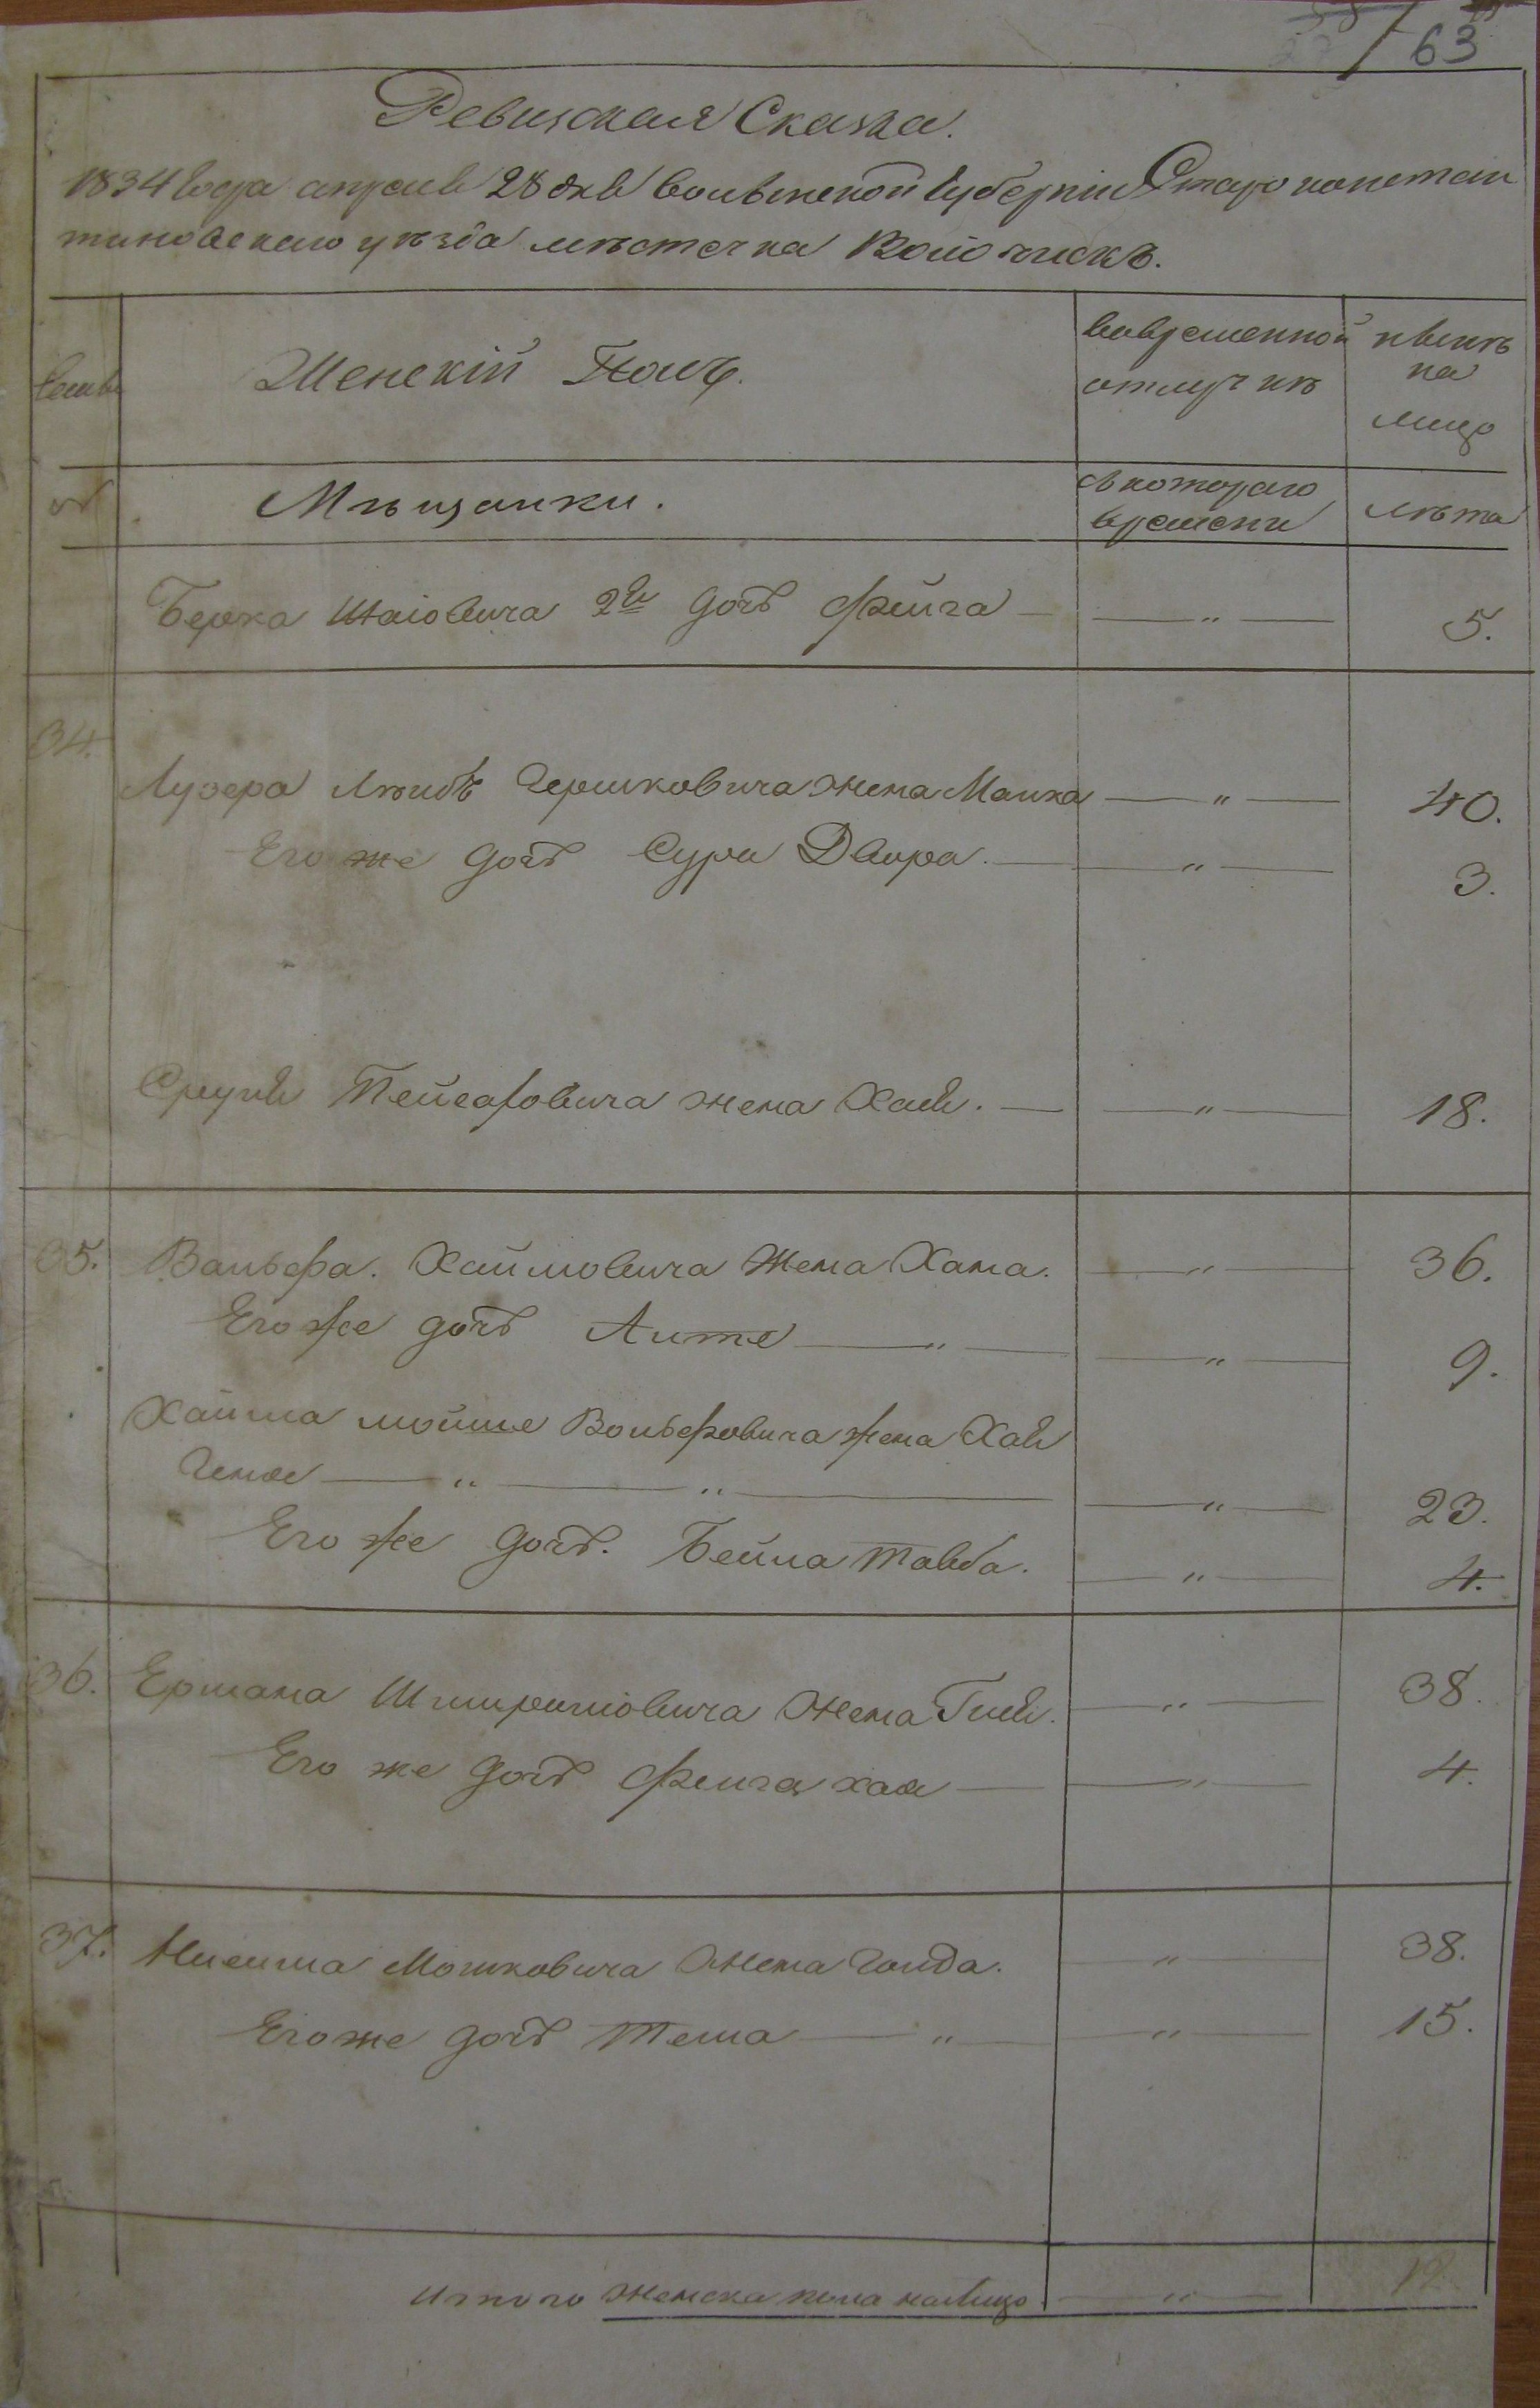 63
Ревизская Сказка.
1834 года апреля 28 дня волынской Губернии Старо констан
тиновскаго уѣзда мѣстечка Волочискъ.
Семьи
Женскій Полъ.
вовременной
отлучкѣ
нынѣ
на
лицо
№
Мѣщанки.
съ котораго
времени
лѣта
Берка Шаіовича 2я дочь Фейга — — " — 5.
34.
Лузера Лейбъ Гершковича жена Малка — " — 40.
Его же дочь Сура Двора. — — " — 3.
Сруля Пейсаховича жена Хая. — — " — 18.
35. Вольфа. Хаимовича Жена Хана. — " — 36.
Его же дочь — " — — " — 9.
Хаима мойше Вольфовича жена Хая
Геня — " — " — — " — 23.
Его же дочь. Бейла Тавба. — " — 4.
36. Ермана Шмириловича Жена — " — 38.
Его же дочь Фейга хая — — " — 4.
37. Мошковича Жена Голда. — " — 38.
Его же дочь — " — — " — 15.
Итого женска пола налицо — " — 12.